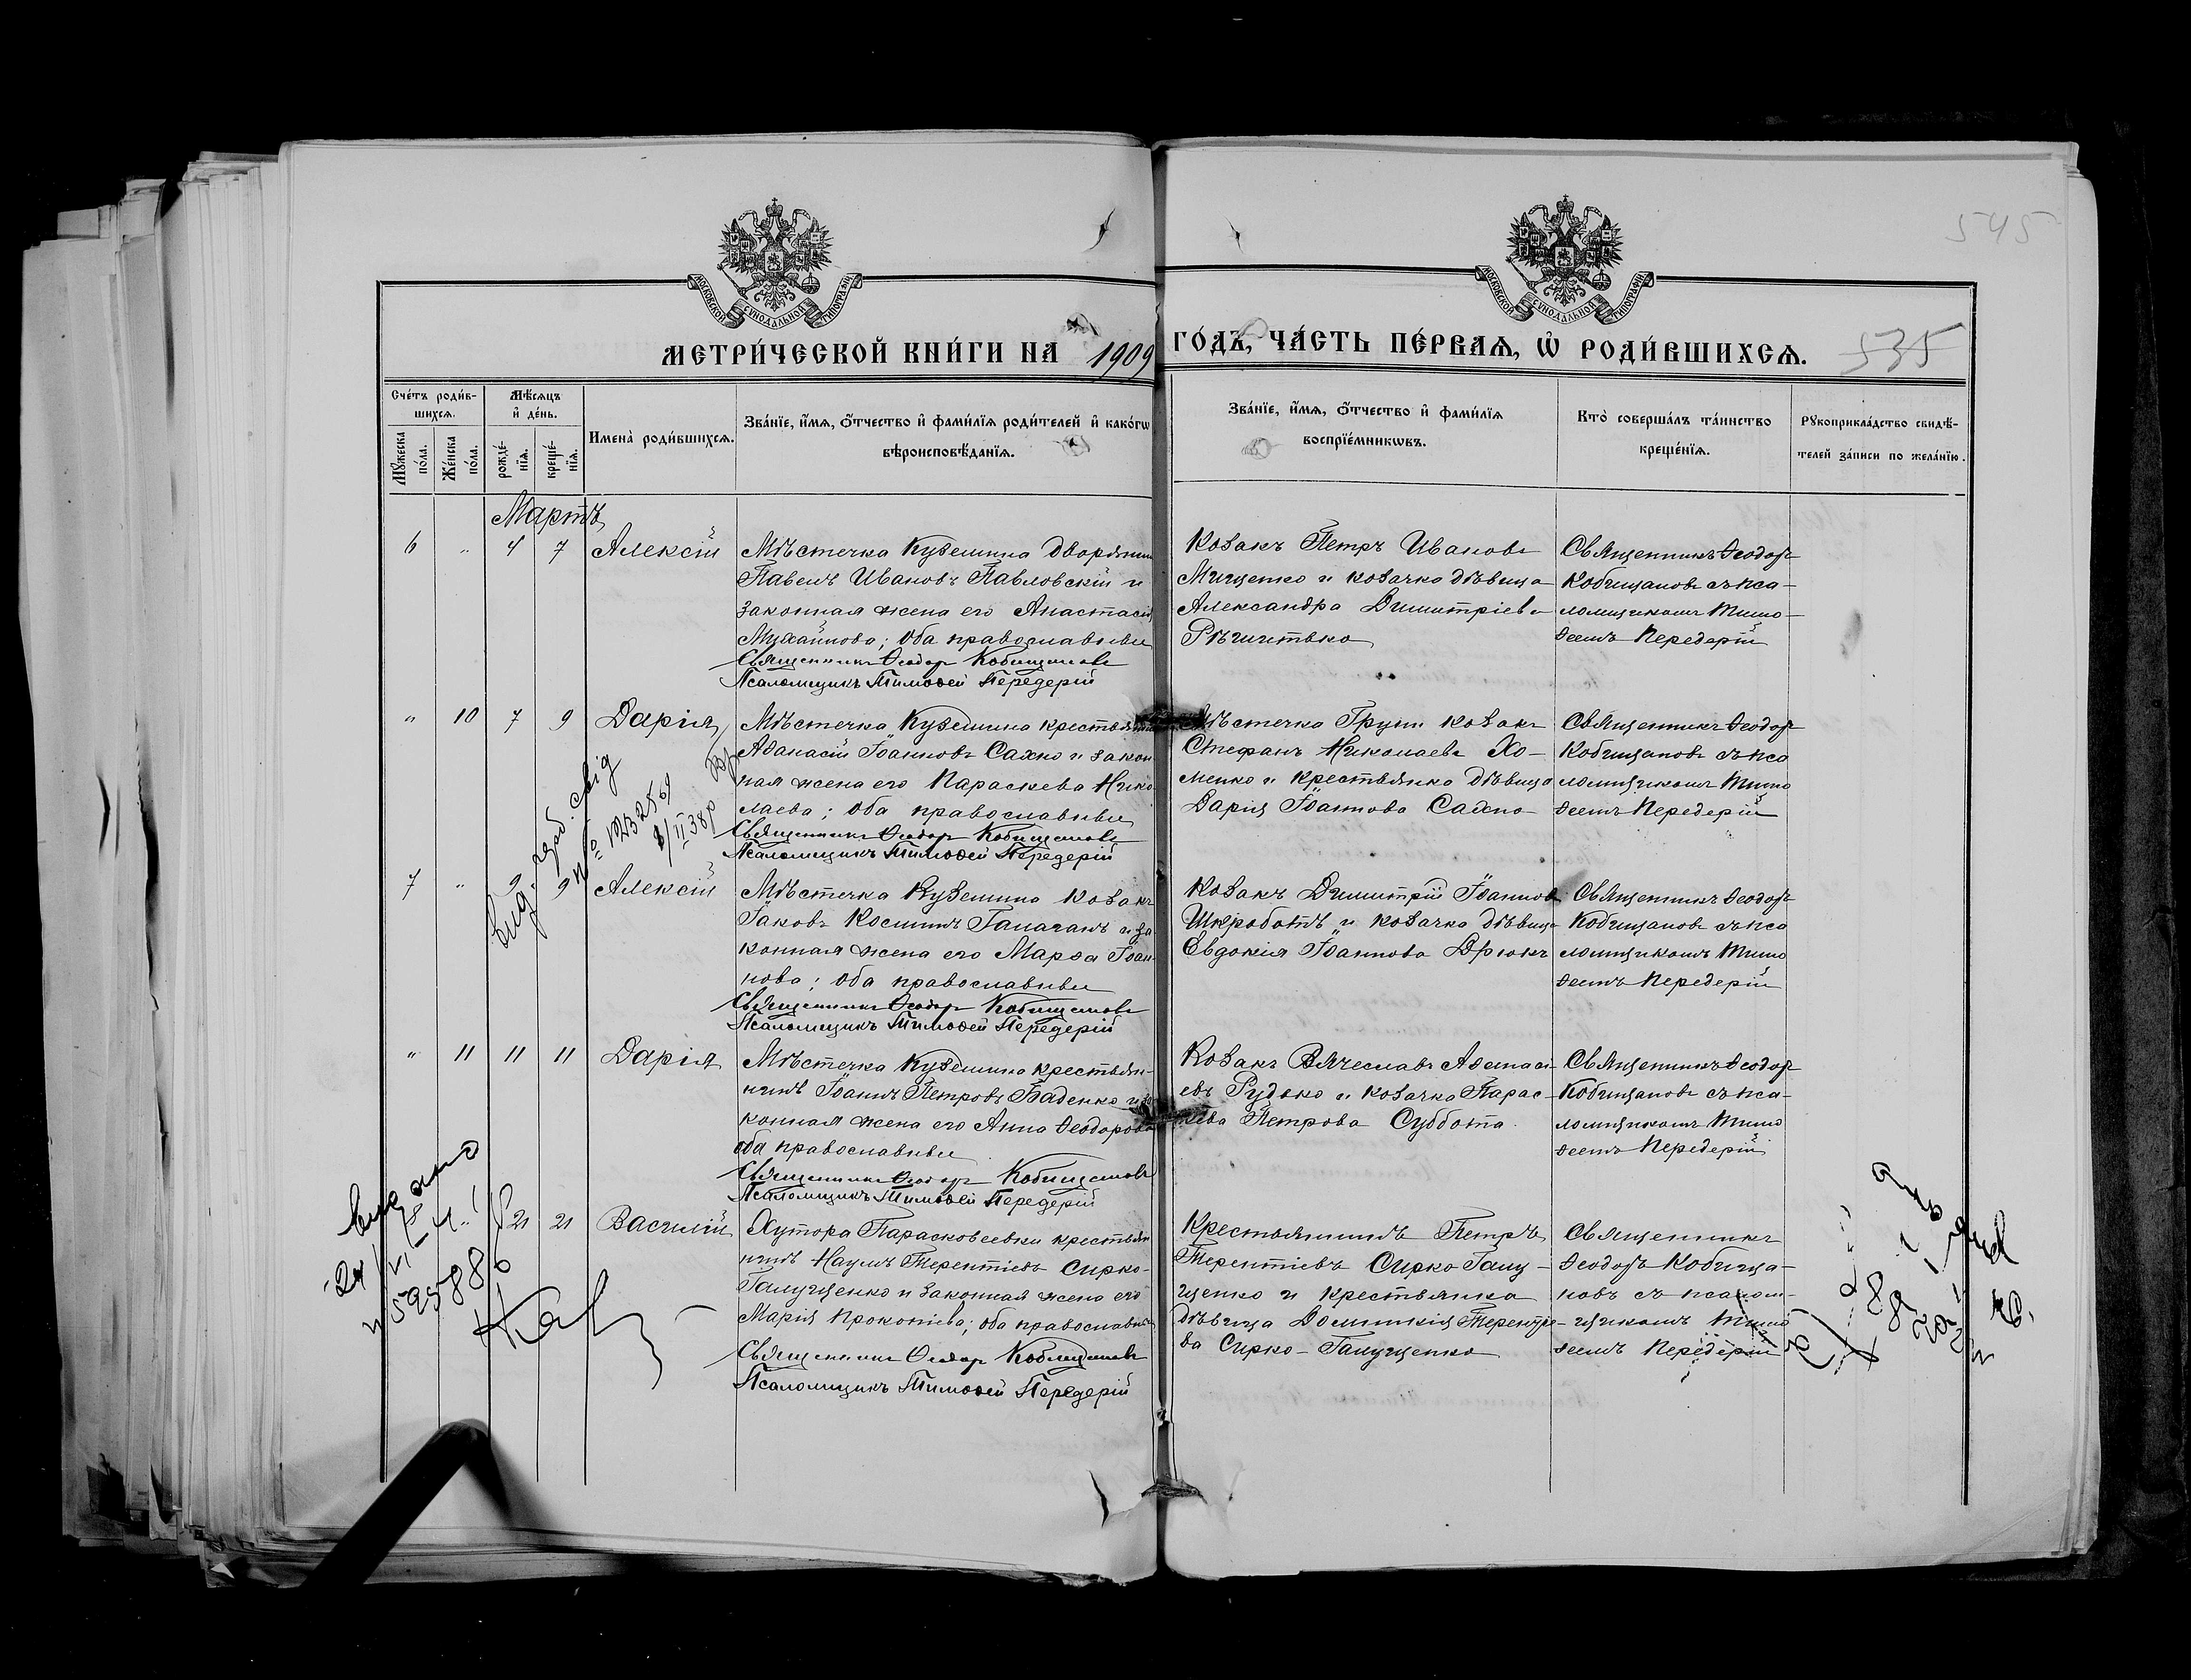 545
МОСКОВСКОЙ СѴНОДАЛЬНОЙ ТИПОГРАФІИ
МОСКОВСКОЙ СѴНОДАЛЬНОЙ ТИПОГРАФІИ
МЕТРИ́ЧЕСКОЙ КНИ́ГИ НА 1909 ГО́ДЪ, ЧА́СТЬ ПЕ́РВАѦ, Ѡ҆ РОДИ́ВШИХСѦ. 535
Сче́тъ роди́в-
шихсѧ.
Мꙋ́жеска по́ла.
Же́нска по́ла.
Мѣ́сѧцъ
и҆ де́нь.
рожде́-
нїѧ.
креще́-
нїѧ.
Имена̀ роди́вшихсѧ.
Зва́нїе, и҆́мѧ, ѻ҆́тчество и҆ фами́лїѧ роди́телей и҆ како́гѡ
вѣроисповѣ́данїѧ.
Зва́нїе, и҆́мѧ, ѻ҆́тчество и҆ фами́лїѧ
воспрїе́мникѡвъ.
Кто̀ соверша́лъ та́инство
креще́нїѧ.
Рꙋкоприкла́дство свидѣ́-
телей за́писи по жела́нїю.
Мартъ
6 " 4 7 Алексій
Мѣстечка Куземина дворянин
Павелъ Ивановъ Павловскій и
законная жена его Анастасія
Михаилова; оба православные
Священникъ Ѳеодоръ Кобищановъ
Псаломщикъ Тимоѳей Передерій
Козакъ Петръ Ивановъ
Мищенко и козачка дѣвица
Александра Димитріева
Рѣшитько
Священникъ Ѳеодоръ
Кобищановъ съ пса-
ломщикомъ Тимо-
ѳеемъ Передерій
" 10 7 9 Дарія
Мѣстечка Куземина крестьянинъ
Аѳанасій Іоанновъ Сахно и закон
ная жена его Параскева Нико
лаева; оба православные
Священникъ Ѳеодоръ Кобищановъ
Псаломщикъ Тимоѳей Передерій
Мѣстечка Груни козакъ
Стефанъ Николаевъ Хо-
менко и крестьянка дѣвица
Дарія Іоаннова Сахно
Священникъ Ѳеодоръ
Кобищановъ съ пса
ломщикомъ Тимо
ѳеемъ Передерій
7 " 9 9 Алексій
Мѣстечка Куземина козакъ
Іаковъ Косминъ Галаганъ и за
конная жена его Марѳа Іоан
нова; оба православные
Священникъ Ѳеодоръ Кобищановъ
Псаломщикъ Тимоѳей Передерій
Козакъ Димитрій Іоанновъ
Шкроботъ и козачка дѣвица
Евдокія Іоаннова Дрюкъ
Священникъ Ѳеодоръ
Кобищановъ съ пса
ломщикомъ Тимо
ѳеемъ Передерій
" 11 11 11 Дарія
Мѣстечка Куземина крестьян-
нинъ Іоаннъ Петровъ Баденко и за
конная жена его Анна Ѳеодорова
оба православные
Священникъ Ѳеодоръ Кобищановъ
Псаломщикъ Тимоѳей Передерій
Козакъ Вячеславъ Аѳанасі
евъ Рудько и козачка Парас-
кева Петрова Суббота
Священникъ Ѳеодоръ
Кобищановъ съ пса-
ломщикомъ Тимо
ѳеемъ Передерій
21 21 Василій
Хутора Парасковеевки крестьян
нинъ Наумъ Терентіевъ Сирко-
Галущенко и законная жена его
Марія Прокопіева; оба православные
Священникъ Ѳеодоръ Кобищановъ
Псаломщикъ Тимоѳей Передерій
Крестьянинъ Петръ
Терентіевъ Сирко Галу-
щенко и крестьянка
дѣвица Домникія Терентіе-
ва Сирко-Галущенко
Священникъ
Ѳеодоръ Кобища-
новъ съ псалом-
щикомъ Тимо
ѳеемъ Передерій
видано
595886